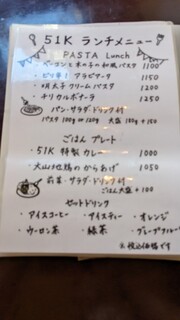 51K ランチメニュー
PASTA Lunch
・ベーコンと木の子の和風パスタ 1100
・ピリ辛！アラビアータ 1150
・明太子クリームパスタ 1200
・チリカルボナーラ 1250
パン・サラダ・ドリンク付
パスタ 100g or 120g 大盛 180g +150
ごはん プレート
・51K 特製 カレー 1000
・大山地鶏のからあげ 1050
前菜・サラダ・ドリンク付
ごはん大盛 +100
セットドリンク
・アイスコーヒー ・アイスティー ・オレンジ
・ウーロン茶 ・緑茶 ・グレープフルーツ
※税込価格です